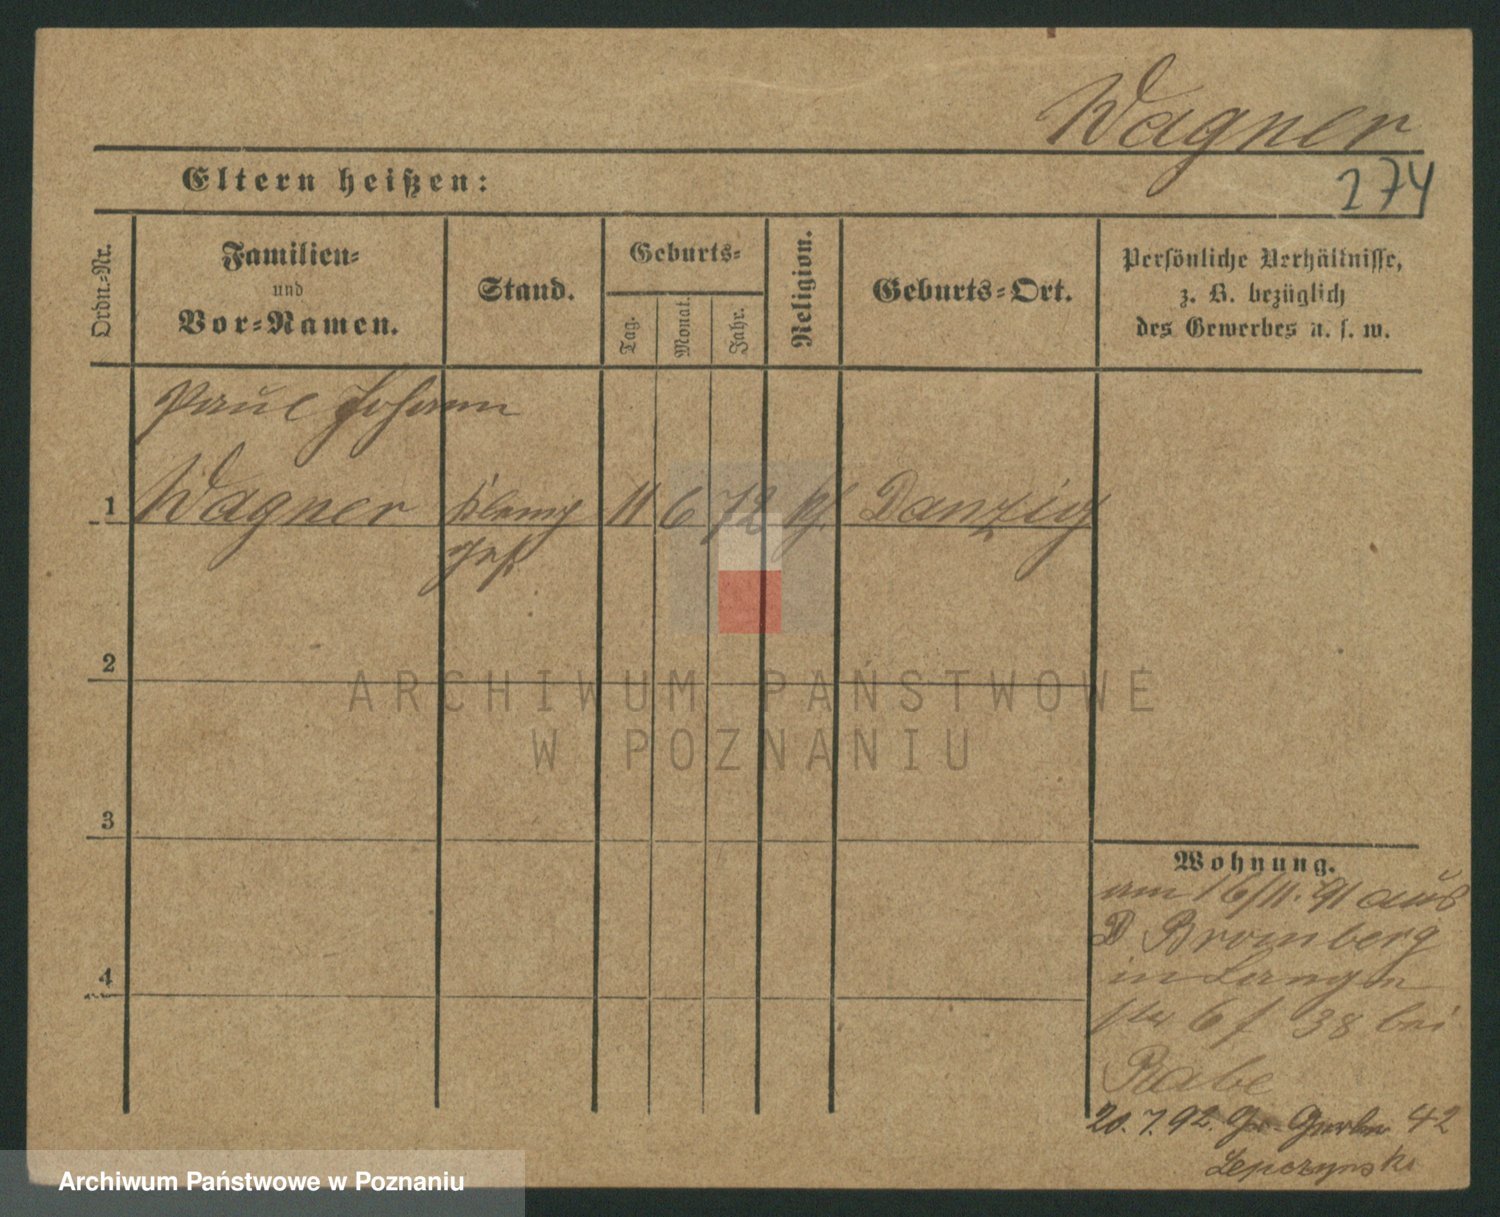 Wagner
Eltern heißen:
274
Ordn.-Nr.
Familien-
und
Vor-Namen.
Stand.
Geburts-
Tag.
Monat.
Jahr.
Religion.
Geburts-Ort.
Persönliche Verhältnisse,
z. B. bezüglich
des Gewerbes u. s. w.
Paul Johann
1 Wagner 11 6 72 Danzig
2
3
4
ARCHIWUM PAŃSTWOWE
W POZNANIU
Wohnung.
am 16/11. 91 aus
Bromberg
in
6 f 38 bei
Rabe
20. 7. 92. Gr. Gerber 42
Lepczynski
Archiwum Państwowe w Poznaniu